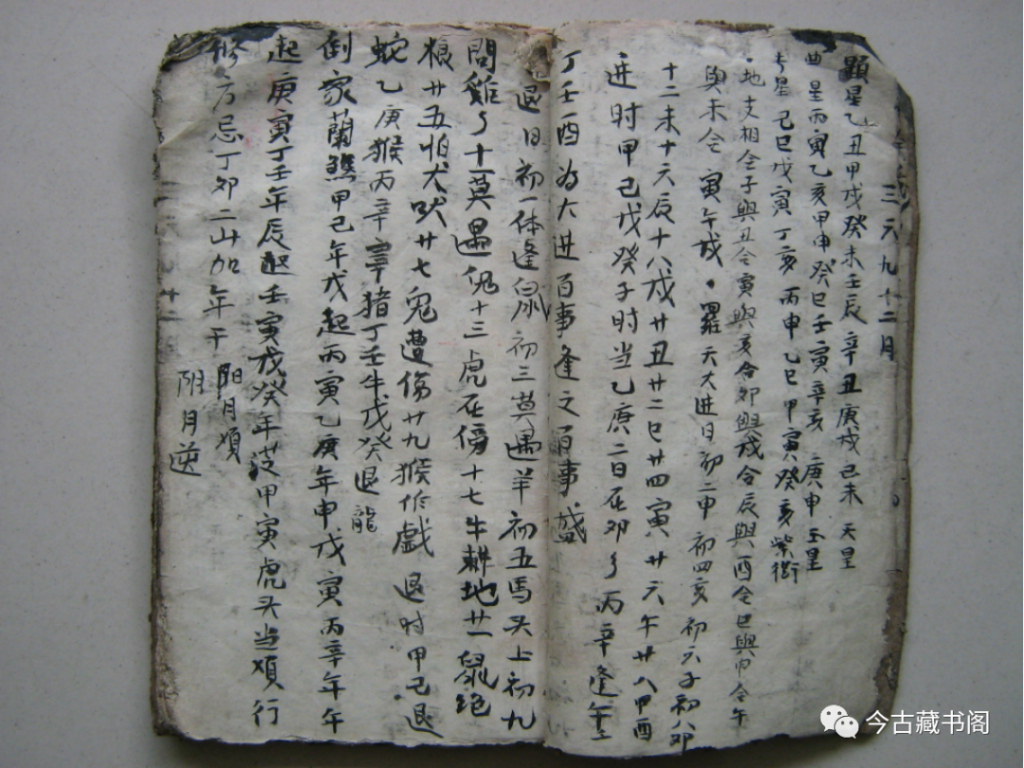 三六九十二月
顯星乙丑甲戌癸未壬辰辛丑庚戌己未天星
曲星丙寅乙亥甲申癸巳壬寅辛亥庚申玉星
专星己巳戊寅丁亥丙申乙巳甲寅癸亥紫衔
地支相合子與丑合寅與亥合卯與戌合辰與酉合巳與申合午
與未合寅午戌羅天大进日初二申初四亥初六子初八卯
十二未十六辰十八戌廿丑廿二巳廿四寅廿六午廿八甲酉
进时甲己戊癸子时当乙庚二日在卯丙辛逢午
丁壬酉为大进百事逢之百事盛
退日初一体逢鼠初三莫遇羊初五馬头上初九
問雞十一莫遇兔十三虎在傍十七牛耕地廿一鼠绝
粮廿五怕犬吠廿七兔遭伤廿九猴作戲退时甲己退
蛇乙庚猴丙辛猪丁壬牛戊癸退龍
倒家蘭甲己年戊起丙寅乙庚年申戊寅丙辛年午
起庚寅丁壬年辰起壬寅戊癸年甲寅虎头当順行
修方忌丁卯二山加年干陽月順
阴月逆
今古藏书阁